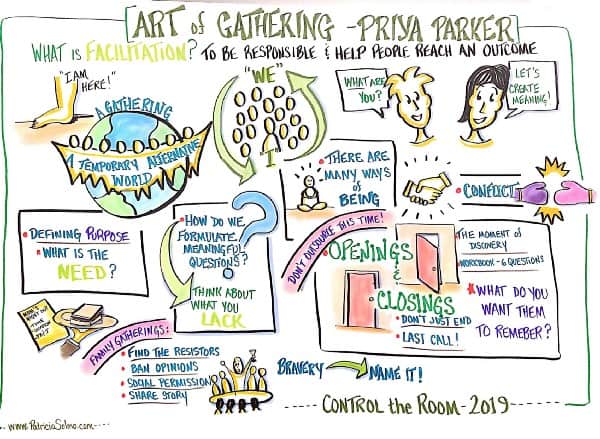 ART of GATHERING - PRIYA PARKER
WHAT IS FACILITATION? TO BE RESPONSIBLE & HELP PEOPLE REACH AN OUTCOME
"I AM
HERE!"
A GATHERING
A TEMPORARY ALTERNATIVE
WORLD
"WE"
"I"
WHAT ARE
YOU?
LET'S
CREATE
MEANING!
• THERE ARE
MANY WAYS
OF
BEING
• CONFLICT
• DEFINING PURPOSE
• WHAT IS THE
NEED?
• HOW DO WE
FORMULATE
MEANINGFUL
QUESTIONS?
THINK ABOUT
WHAT YOU
LACK
DON'T OUTSOURCE THIS TIME!
• OPENINGS
&
• CLOSINGS
• DON'T JUST END
• LAST CALL!
• THE MOMENT of
DISCOVERY
• WORKBOOK - 6 QUESTIONS
* WHAT DO YOU
WANT THEM
TO REMEBER?
FAMILY GATHERINGS:
• FIND THE RESISTORS
• BAN OPINIONS
• SOCIAL PERMISSION
• SHARE STORY
BRAVERY
NAME IT!
www.PatriciaSelmo.com
CONTROL the ROOM - 2019